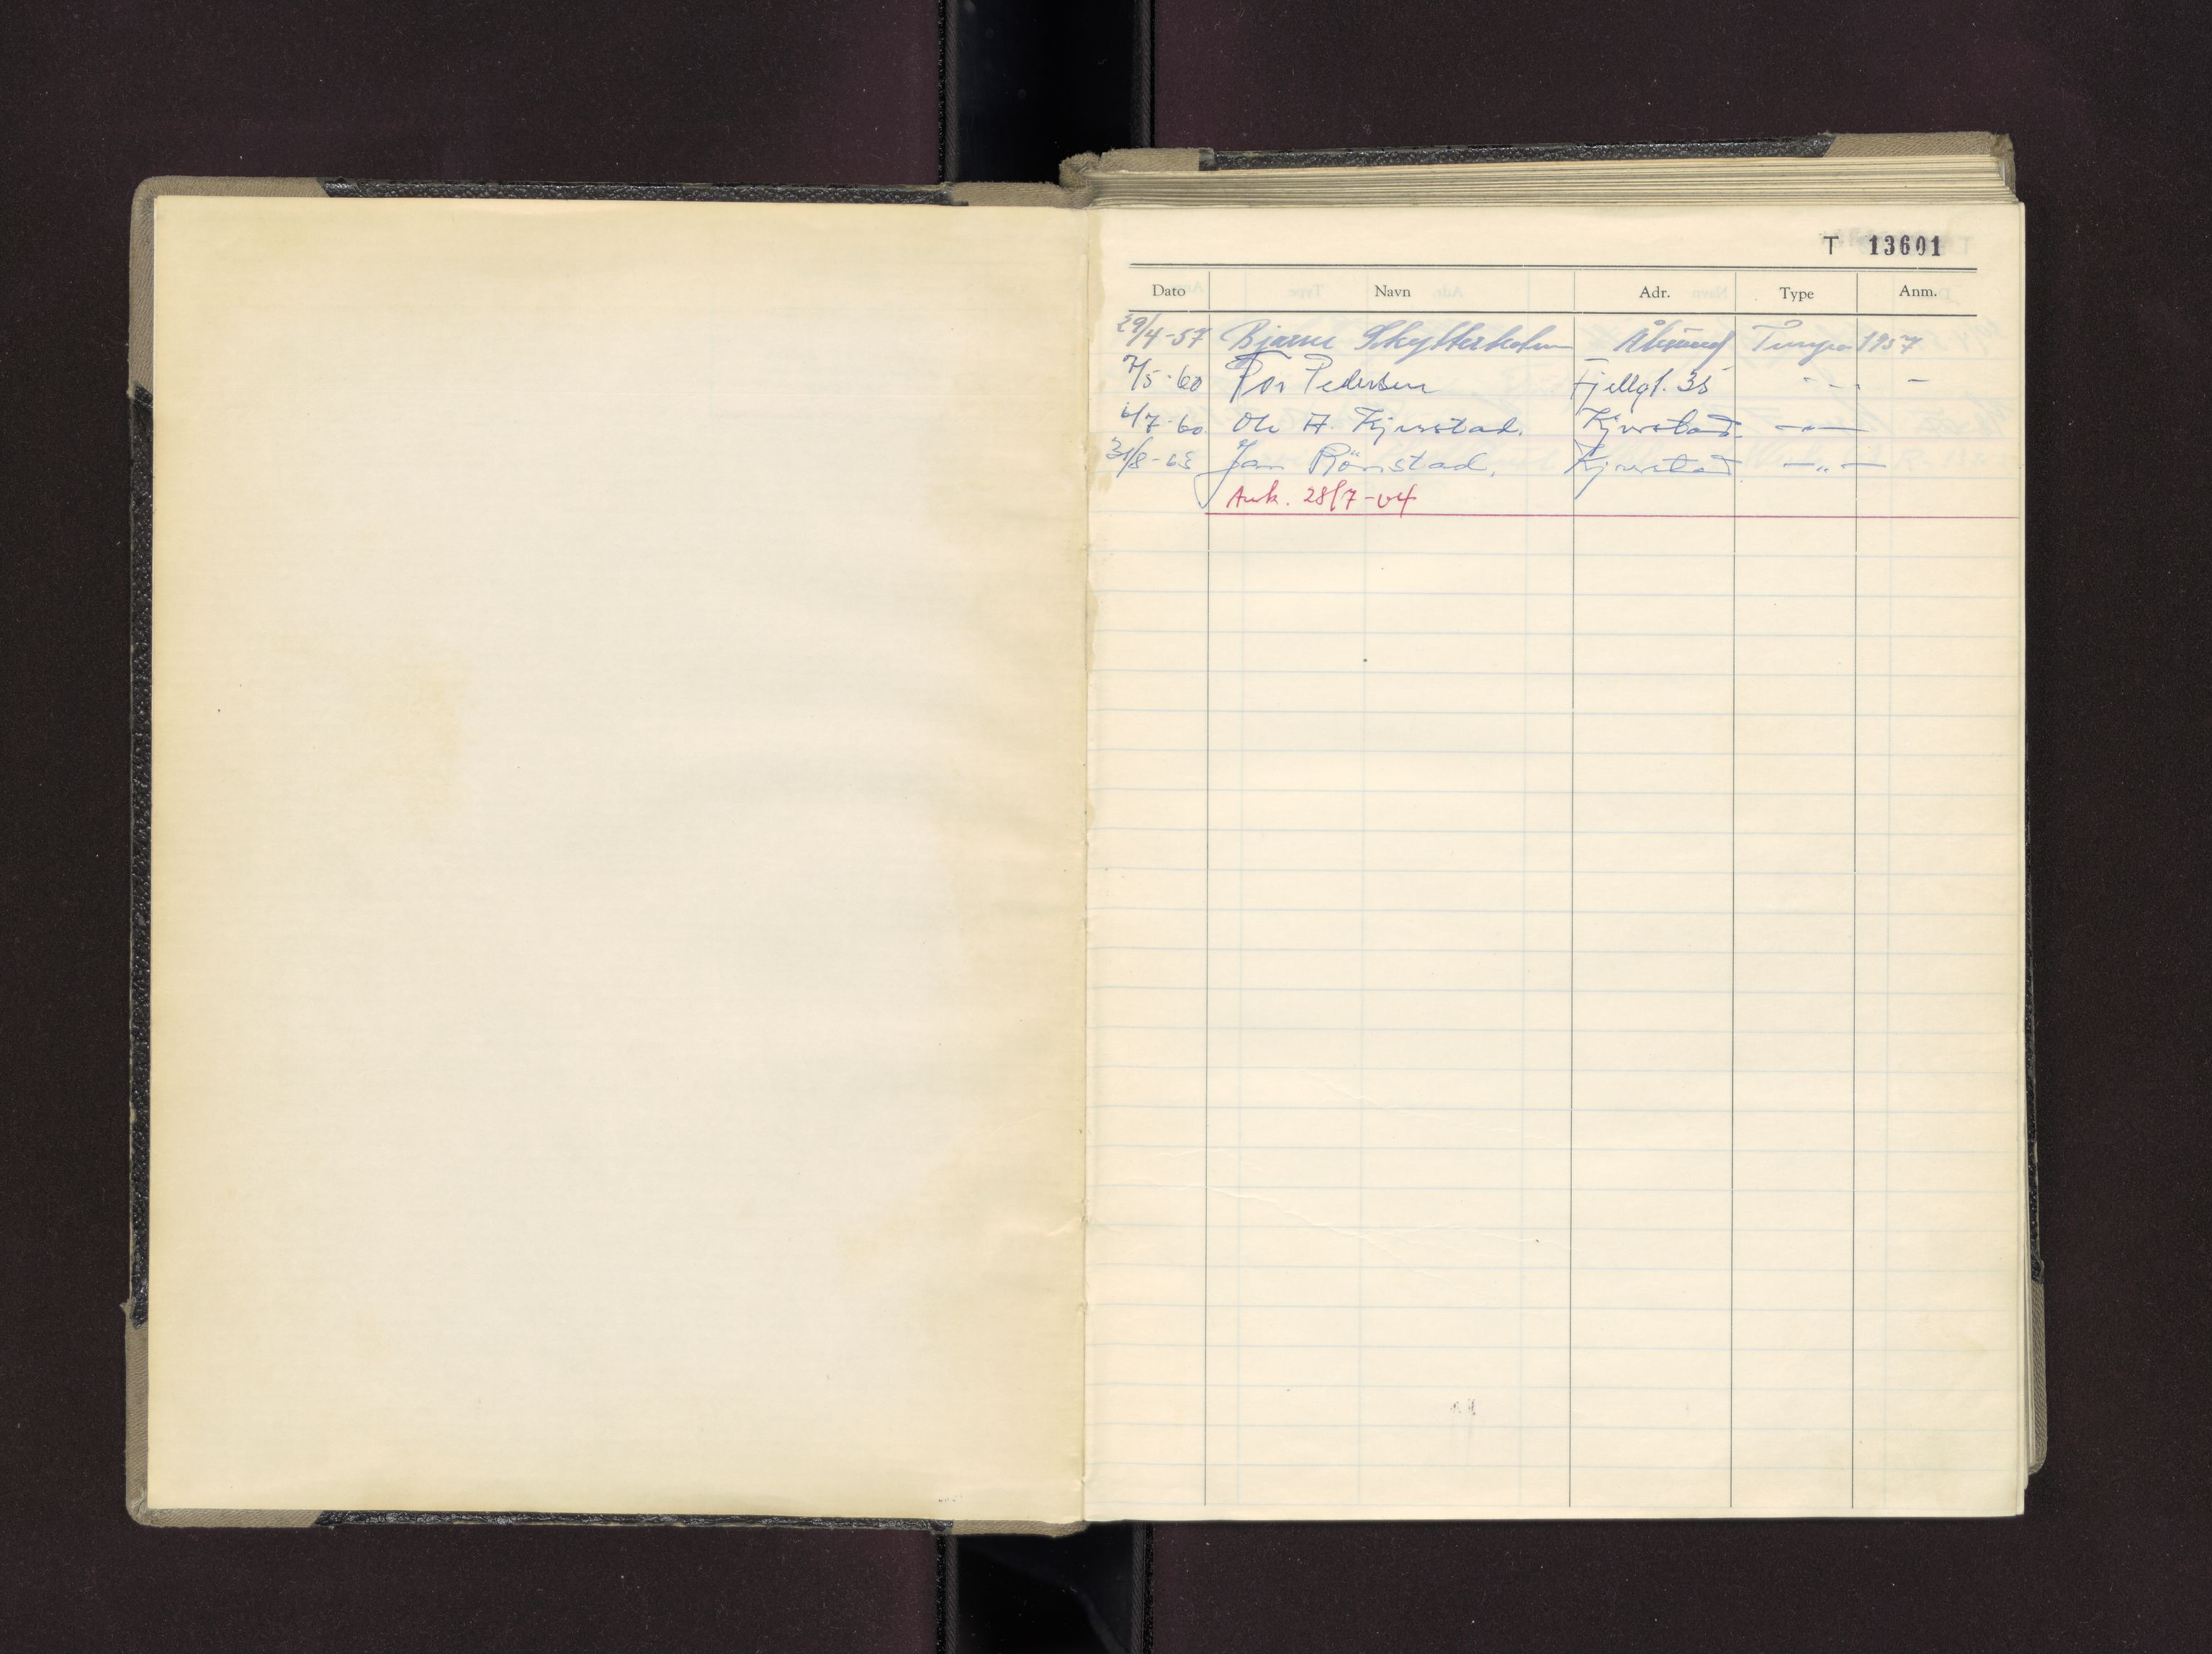 T 13601
Dato Navn Adr. Type Anm.
29/4-57 Bjarne Skytterholm Ålesund Tempo 1957
7/5-60 Tor Pedersen Fjellgt. 35 - " - -
6/7-60. Ole A. Kjerstad. Kjerstad - " -
31/8-63 Jan Rönstad, Kjerstad - " -
Avk. 28/7-64